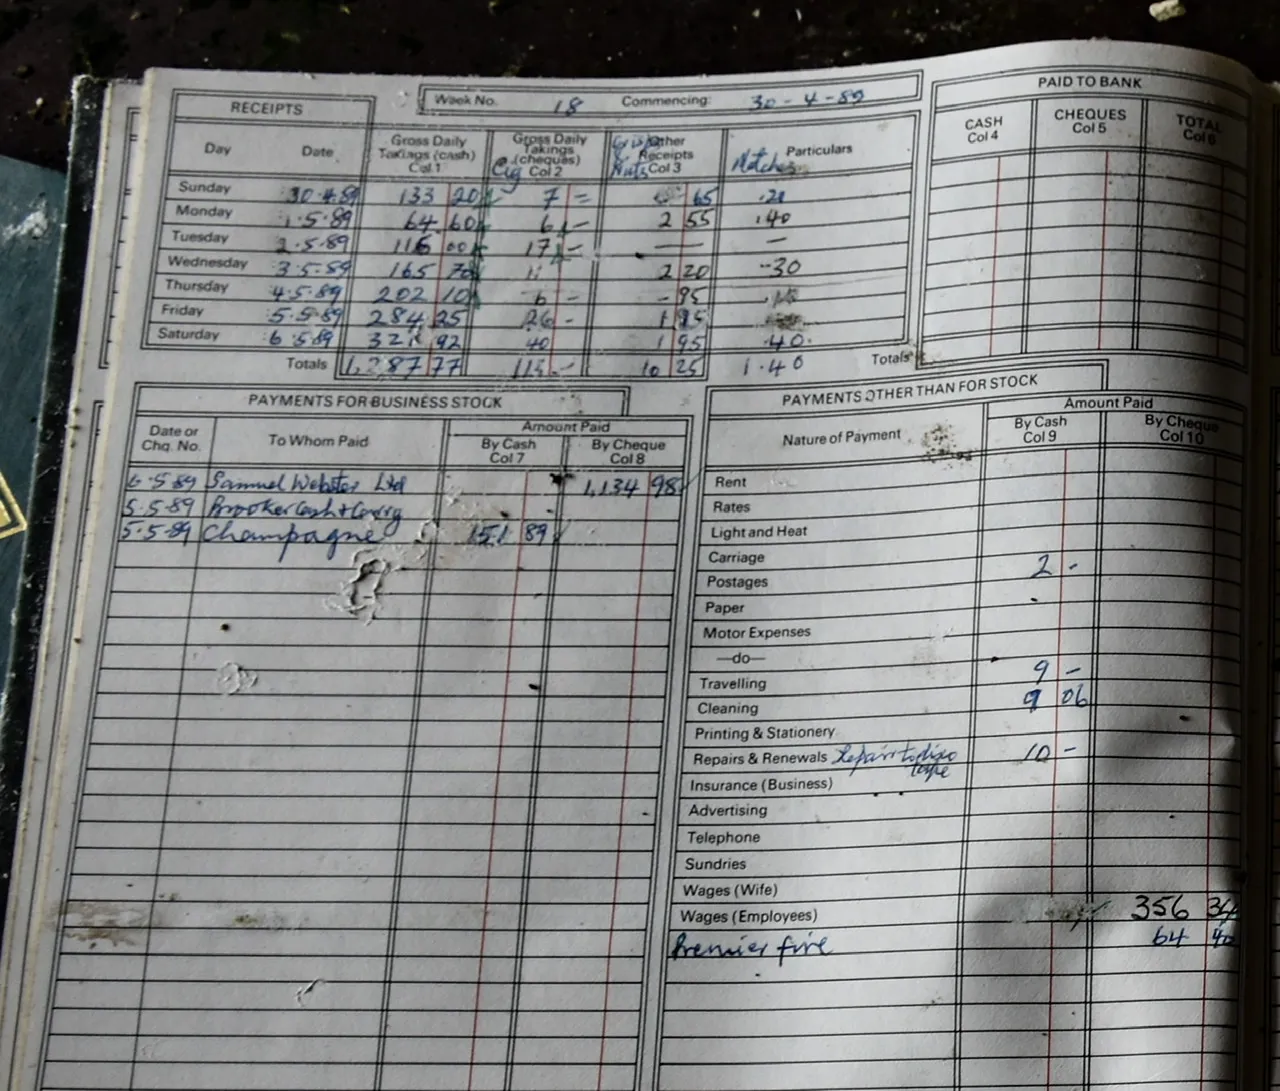 RECEIPTS
Week No. 18 Commencing: 30-4-89
Day Date Gross Daily Takings (cash) Col 1 Gross Daily Takings (cheques) Col 2 Other Receipts Col 3 Particulars
Cig Nuts Matches
Sunday 30.4.89 133 20 7 = 65 .20
Monday 1.5.89 64 60 6 - 2 55 .40
Tuesday 2.5.89 116 00 17 - — —
Wednesday 3.5.89 165 70 11 2 20 -30
Thursday 4.5.89 202 10 6 - - 95
Friday 5.5.89 284 25 26 - 1 95
Saturday 6.5.89 321 92 40 1 95 40.
Totals 1,287 77 113 - 10 25 1.40
PAID TO BANK
CASH Col 4 CHEQUES Col 5 TOTAL Col 6
Totals
PAYMENTS FOR BUSINESS STOCK
Date or Chq. No. To Whom Paid Amount Paid
By Cash Col 7 By Cheque Col 8
6.5.89 Samuel Webster Ltd 1,134 98
5.5.89 Brooker Cash & Carry
5.5.89 Champagne 151 89
PAYMENTS OTHER THAN FOR STOCK
Nature of Payment Amount Paid
By Cash Col 9 By Cheque Col 10
Rent
Rates
Light and Heat
Carriage
Postages 2 -
Paper
Motor Expenses
—do—
Travelling 9 -
Cleaning 9 06
Printing & Stationery
Repairs & Renewals Repair to disco tape 10 -
Insurance (Business)
Advertising
Telephone
Sundries
Wages (Wife)
Wages (Employees) 356 34
Premier fire 64 40